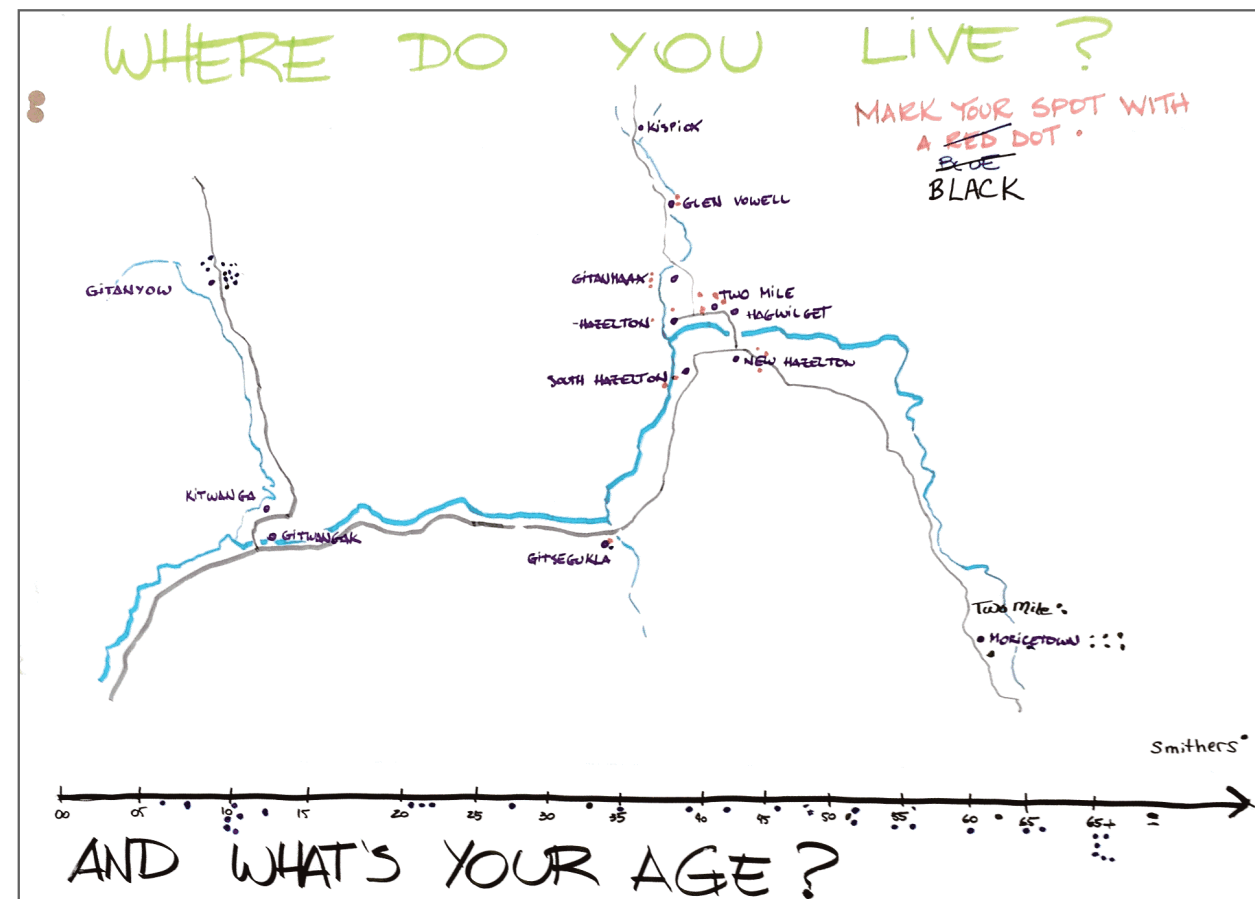 WHERE DO YOU LIVE?
MARK YOUR SPOT WITH
A RED DOT
BLUE
BLACK
KISPIOX
GLEN VOWELL
GITANMAAX
TWO MILE
HAZELTON
HAGWILGET
NEW HAZELTON
SOUTH HAZELTON
GITANYOW
KITWANGA
GITWANGAK
GITSEGUKLA
Two Mile
MORICETOWN
Smithers
00 05 10 15 20 25 30 35 40 45 50 55 60 65 65+
AND WHAT'S YOUR AGE?